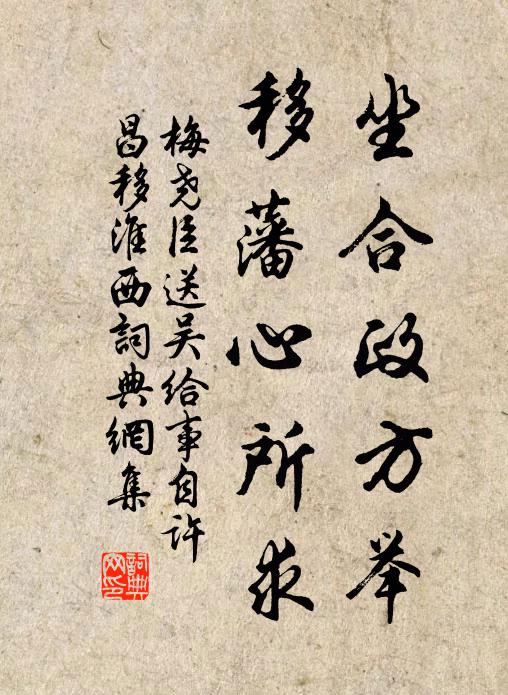 坐合政方举
移藩心所求
梅尧臣送吴给事自许
昌移淮西詞典網集
詞典網印